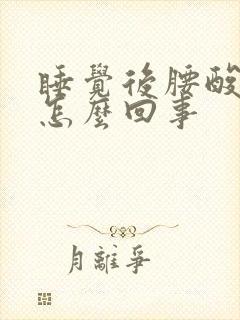 睡覺後腰酸
怎麼回事
月離爭